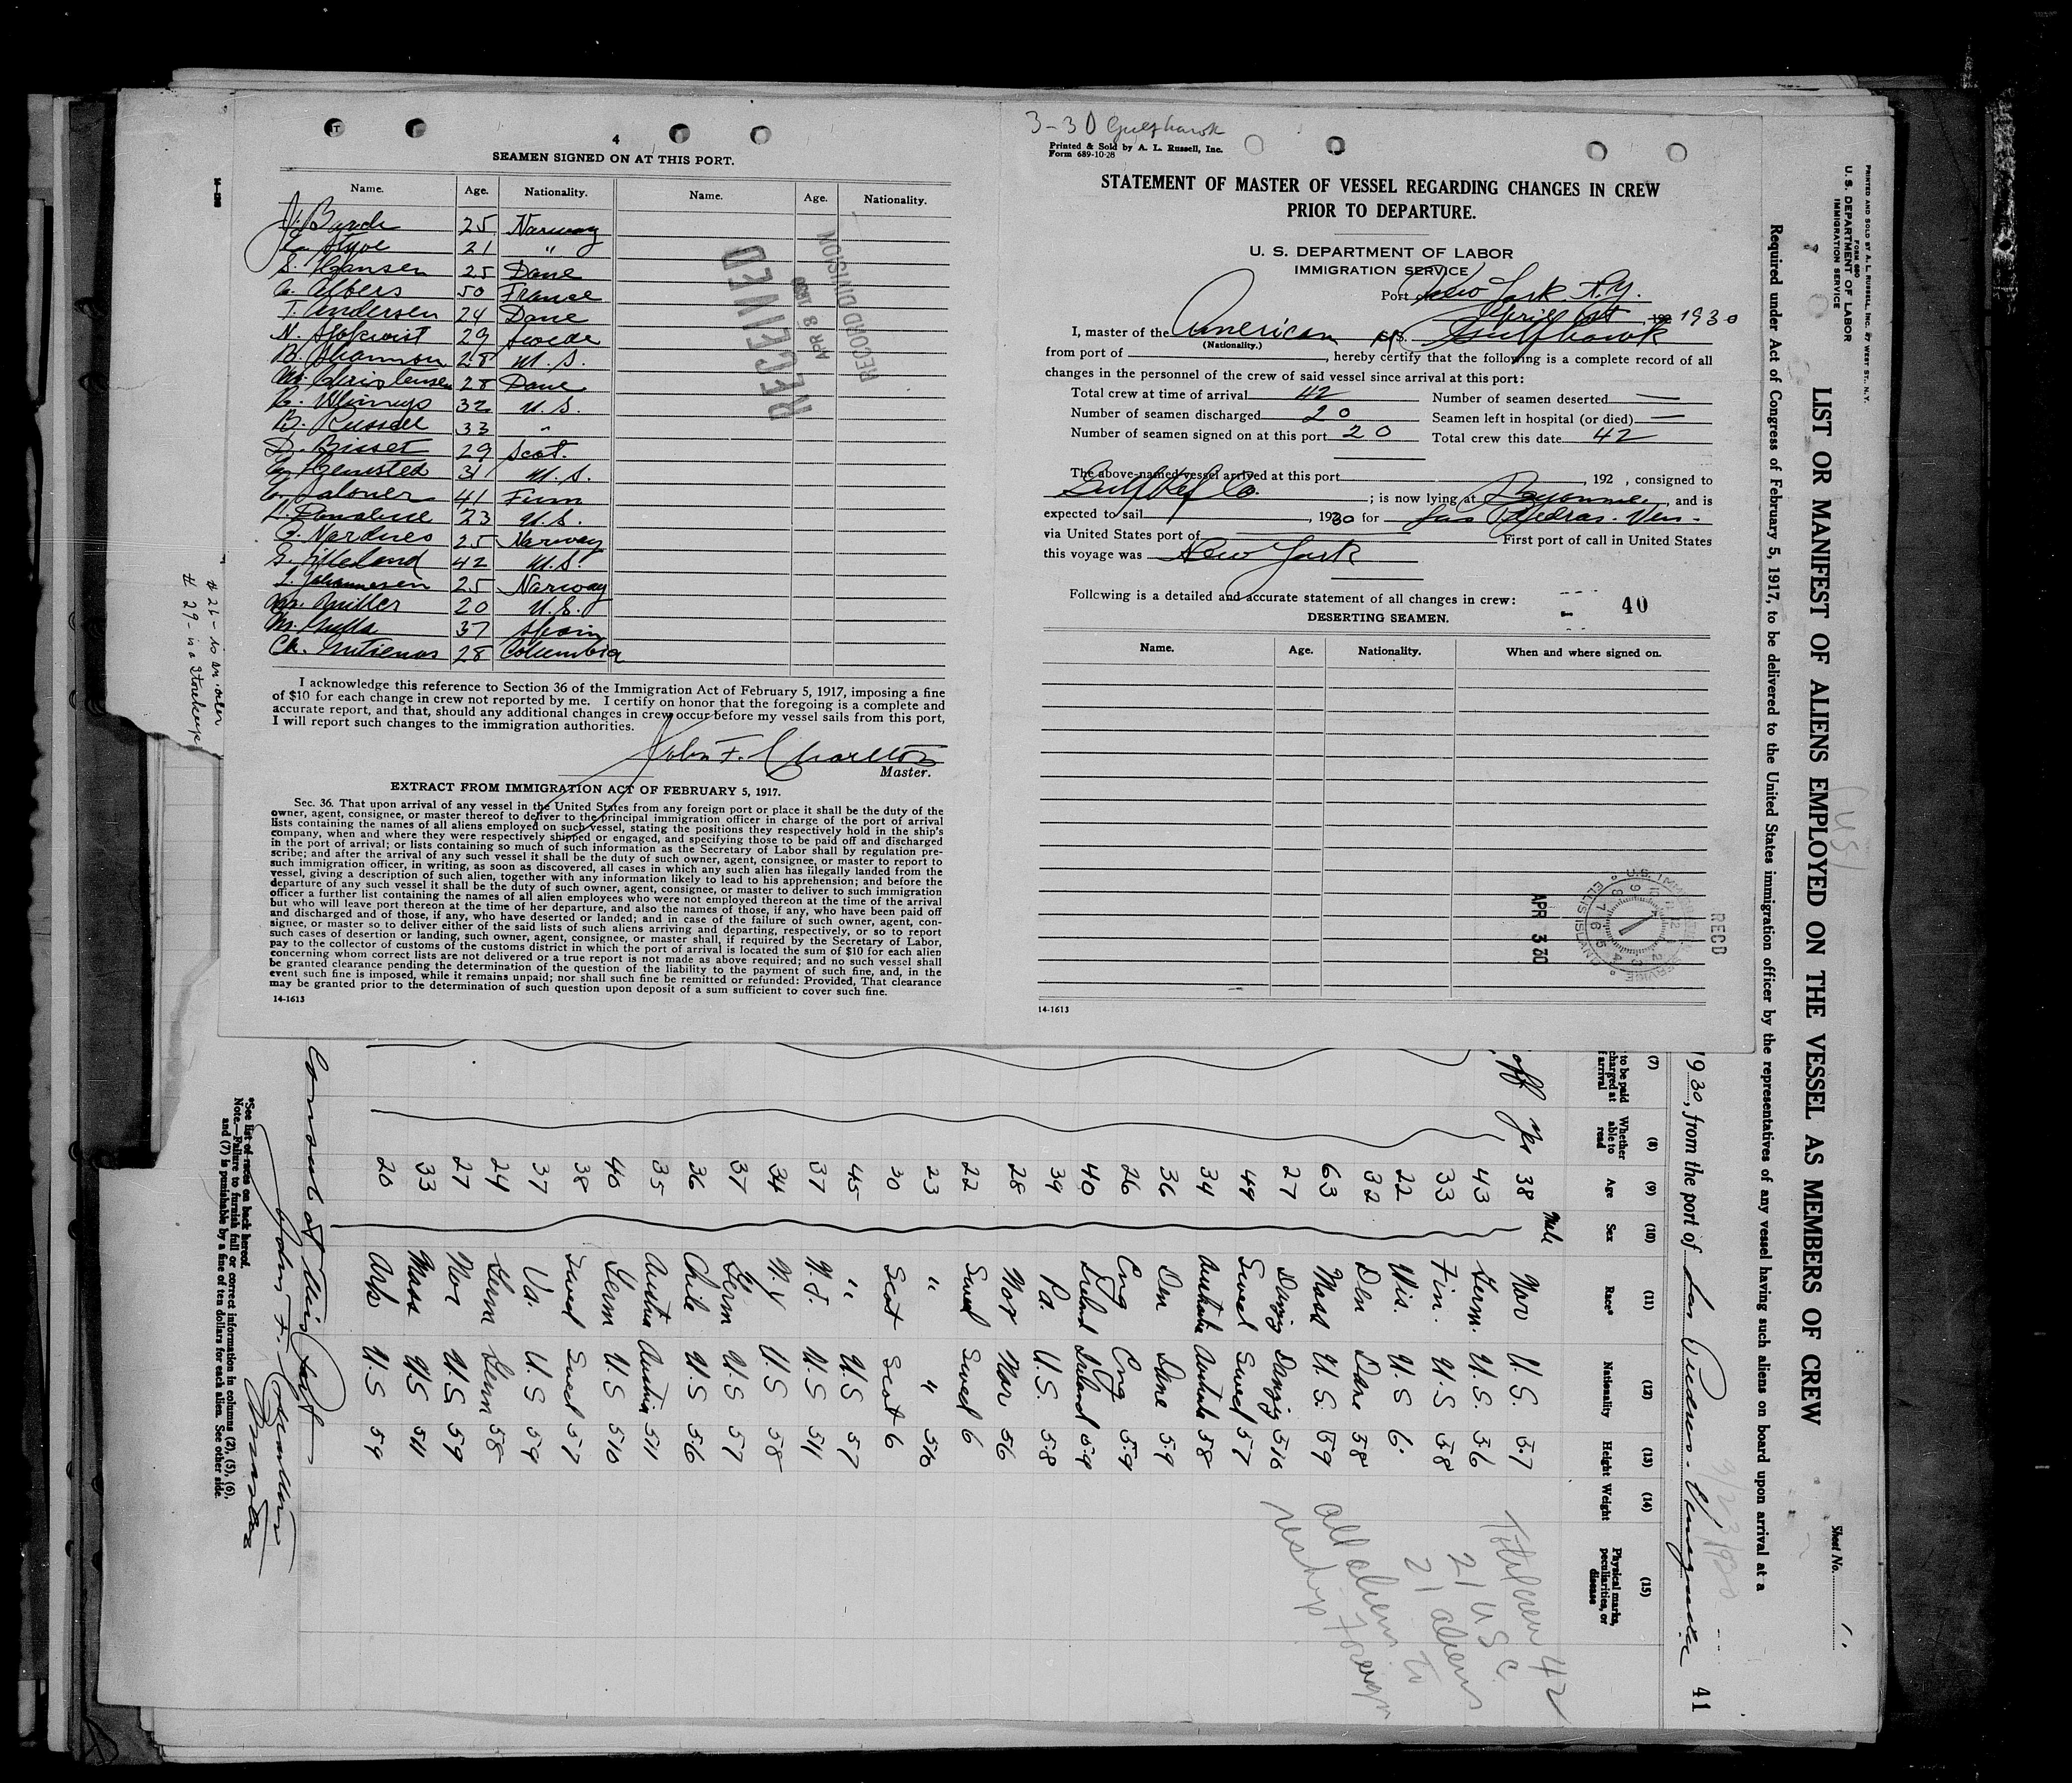 4
SEAMEN SIGNED ON AT THIS PORT.
Name. Age. Nationality. Name. Age. Nationality.
25 Norway
21 "
S. Hansen 25 Dane
Albers 50 France
T. Andersen 24 Dane
N. 29 Swede
B. Shannon 28 U.S.
Christensen 28 Dane
32 U.S.
B. Russell 33 "
D. Bisset 29 Scot.
31 U.S.
41 Finn
23 U.S.
25 Norway
42 U.S.
Johannesen 25 Norway
Miller 20 U.S.
37 Spain
28 Columbia
RECEIVED
APR 8 1930
RECORD DIVISION
I acknowledge this reference to Section 36 of the Immigration Act of February 5, 1917, imposing a fine
of $10 for each change in crew not reported by me. I certify on honor that the foregoing is a complete and
accurate report, and that, should any additional changes in crew occur before my vessel sails from this port,
I will report such changes to the immigration authorities.
John F. Charlton
Master.
EXTRACT FROM IMMIGRATION ACT OF FEBRUARY 5, 1917.
Sec. 36. That upon arrival of any vessel in the United States from any foreign port or place it shall be the duty of the
owner, agent, consignee, or master thereof to deliver to the principal immigration officer in charge of the port of arrival
lists containing the names of all aliens employed on such vessel, stating the positions they respectively hold in the ship's
company, when and where they were respectively shipped or engaged, and specifying those to be paid off and discharged
in the port of arrival; or lists containing so much of such information as the Secretary of Labor shall by regulation pre-
scribe; and after the arrival of any such vessel it shall be the duty of such owner, agent, consignee, or master to report to
such immigration officer, in writing, as soon as discovered, all cases in which any such alien has illegally landed from the
vessel, giving a description of such alien, together with any information likely to lead to his apprehension; and before the
departure of any such vessel it shall be the duty of such owner, agent, consignee, or master to deliver to such immigration
officer a further list containing the names of all alien employees who were not employed thereon at the time of the arrival
but who will leave port thereon at the time of her departure, and also the names of those, if any, who have been paid off
and discharged and of those, if any, who have deserted or landed; and in case of the failure of such owner, agent, con-
signee, or master so to deliver either of the said lists of such aliens arriving and departing, respectively, or so to report
such cases of desertion or landing, such owner, agent, consignee, or master shall, if required by the Secretary of Labor,
pay to the collector of customs of the customs district in which the port of arrival is located the sum of $10 for each alien
concerning whom correct lists are not delivered or a true report is not made as above required; and no such vessel shall
be granted clearance pending the determination of the question of the liability to the payment of such fine, and, in the
event such fine is imposed, while it remains unpaid; nor shall such fine be remitted or refunded: Provided, That clearance
may be granted prior to the determination of such question upon deposit of a sum sufficient to cover such fine.
14-1613
3-30 Gulfhawk
Printed & Sold by A. L. Russell, Inc.
Form 689-10-28
STATEMENT OF MASTER OF VESSEL REGARDING CHANGES IN CREW
PRIOR TO DEPARTURE.
U. S. DEPARTMENT OF LABOR
IMMIGRATION SERVICE
Port New York N.Y.
April 1st, 192 1930
I, master of the American S/S. Gulfhawk
(Nationality.)
from port of , hereby certify that the following is a complete record of all
changes in the personnel of the crew of said vessel since arrival at this port:
Total crew at time of arrival 42 Number of seamen deserted —
Number of seamen discharged 20 Seamen left in hospital (or died) —
Number of seamen signed on at this port 20 Total crew this date 42
The above-named vessel arrived at this port , 192 , consigned to
Gulf Ref Co. ; is now lying at Bayonne, and is
expected to sail , 1930 for Las Piedras - Ven -
via United States port of First port of call in United States
this voyage was New York
Following is a detailed and accurate statement of all changes in crew:
40
DESERTING SEAMEN.
Name. Age. Nationality. When and where signed on.
APR 3 30
RECD
U.S. IMMIGRATION SERVICE
ELLIS ISLAND
14-1613
PRINTED AND SOLD BY A. L. RUSSELL, INC. 87 WEST ST., N.Y.
FORM 680
U. S. DEPARTMENT OF LABOR
IMMIGRATION SERVICE
Sheet No. 1
LIST OR MANIFEST OF ALIENS EMPLOYED ON THE VESSEL AS MEMBERS OF CREW
Required under Act of Congress of February 5, 1917, to be delivered to the United States immigration officer by the representatives of any vessel having such aliens on board upon arrival at a
1930, from the port of Las Piedras - Venezuela
41
(7) (8) (9) (10) (11) (12) (13) (14) (15)
to be paid
Whether able to read
Age
Sex
Race*
Nationality
Height
Weight
Physical marks, peculiarities, or disease
Male
off Yes 38 Nor U.S. 57
43 Germ. U.S. 56
33 Fin. U.S 58
22 Wis. U.S 6
32 Den Dane 58
63 Mass U.S. 59
27 Danzig Danzig 510
49 Swed Swed 57
34 Australia Australia 58
36 Den Dane 59
26 Eng Eng 59
40 Ireland Ireland 59
39 Pa. U.S. 58
28 Nor Nor 56
22 Swed Swed 6
23 " " 510
30 Scot Scot 6
45 " U.S 57
37 N.J. U.S 511
34 N.Y U.S 58
37 Germ U.S 57
36 Chile U.S 56
35 Austria Austria 511
40 Germ U.S 510
38 Swed Swed 57
37 Va. U.S 59
24 Germ Germ 58
27 Nor U.S 59
33 Mass U.S 511
20 Ark U.S 59
Total crew 42
21 U S C
21 aliens
all aliens to
reship foreign
Consul at this Port
John F. Charlton
Master
*See list of races on back hereof.
Note.—Failure to furnish full or correct information in columns (2), (5), (6),
and (7) is punishable by a fine of ten dollars for each alien. See other side.